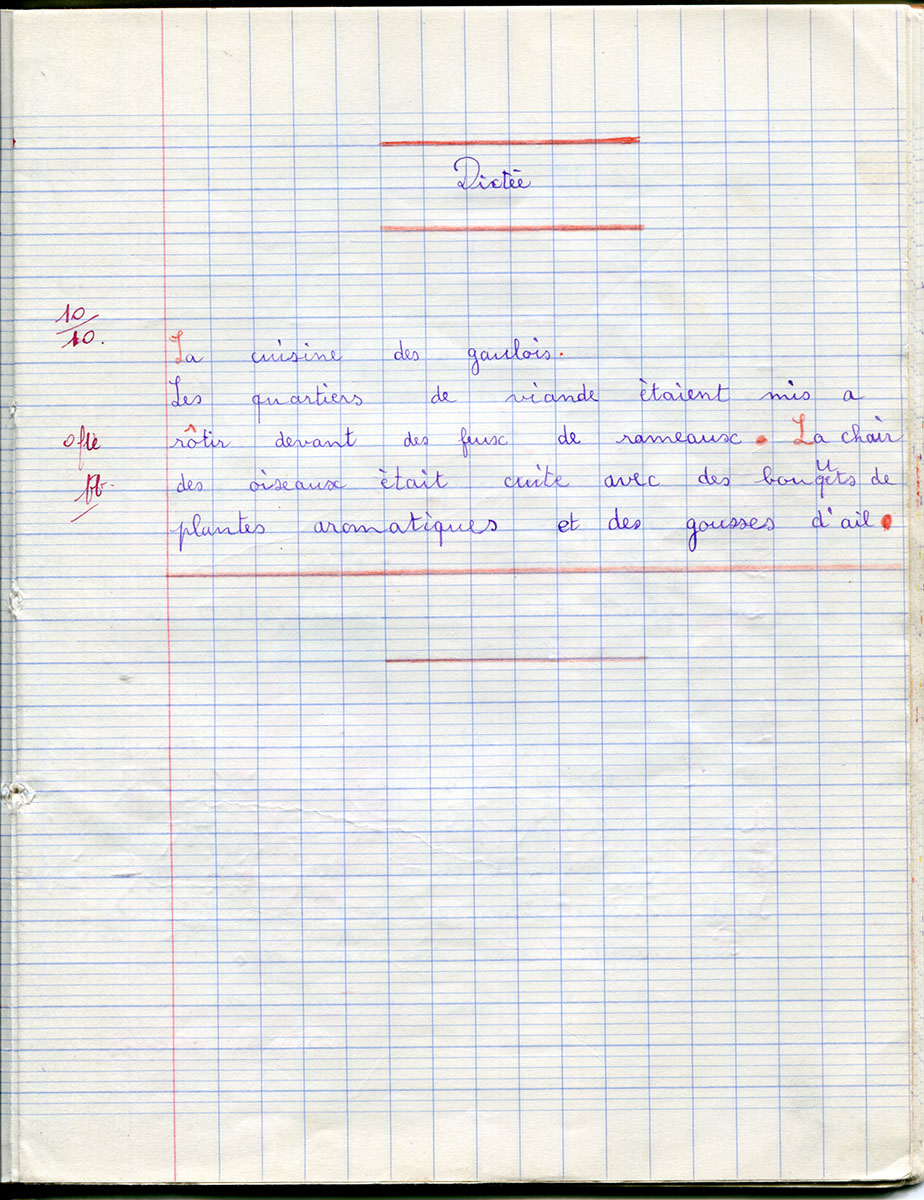 Dictée
10/10.
La cuisine des gaulois.
Les quartiers de viande ètaient mis a
ofle rôtir devant des feux de rameaux. La chair
des oiseaux ètait cuite avec des bouquets de
plantes aromatiques et des gousses d'ail.